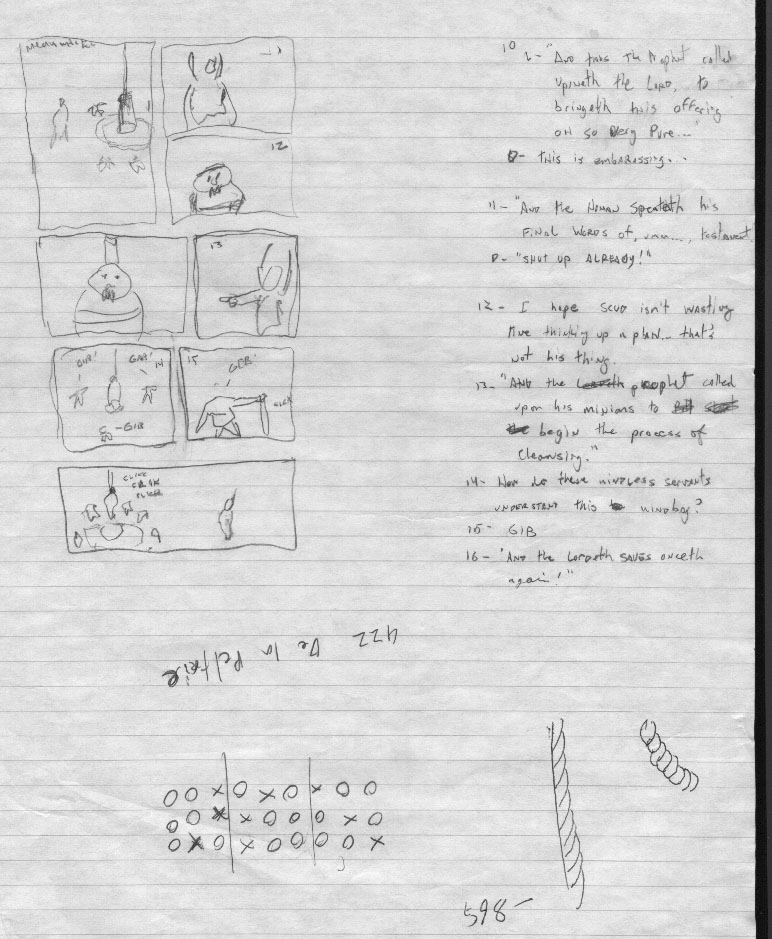 Meanwhile
11
10
2- "AND thus the Prophet called
upneth the LORD, to
bringeth this offering
OH so very Pure..."
D- this is embarassing...
12
11- "AND the HUMAN Speaketh his
FINAL WORDS of, umm..., testament.
D- "SHUT UP ALREADY!"
13
12- I hope SCUD isn't wasting
time thinking up a plan... that's
not his thing.
GIB! GAB! 14
15 GEB!
GIB
13- "AND the prophet called
upon his minions to
begin the process of
Cleansing."
CLICK
CLICK
14- How do these mindless servants
UNDERSTAND this windbag?
15- GIB
16- "AND the Lordeth SAVES onceth
again!"
422 De la Peltrie
O O X O X O X O O
O O X X O O O X O
O X O X O O O O X
598-